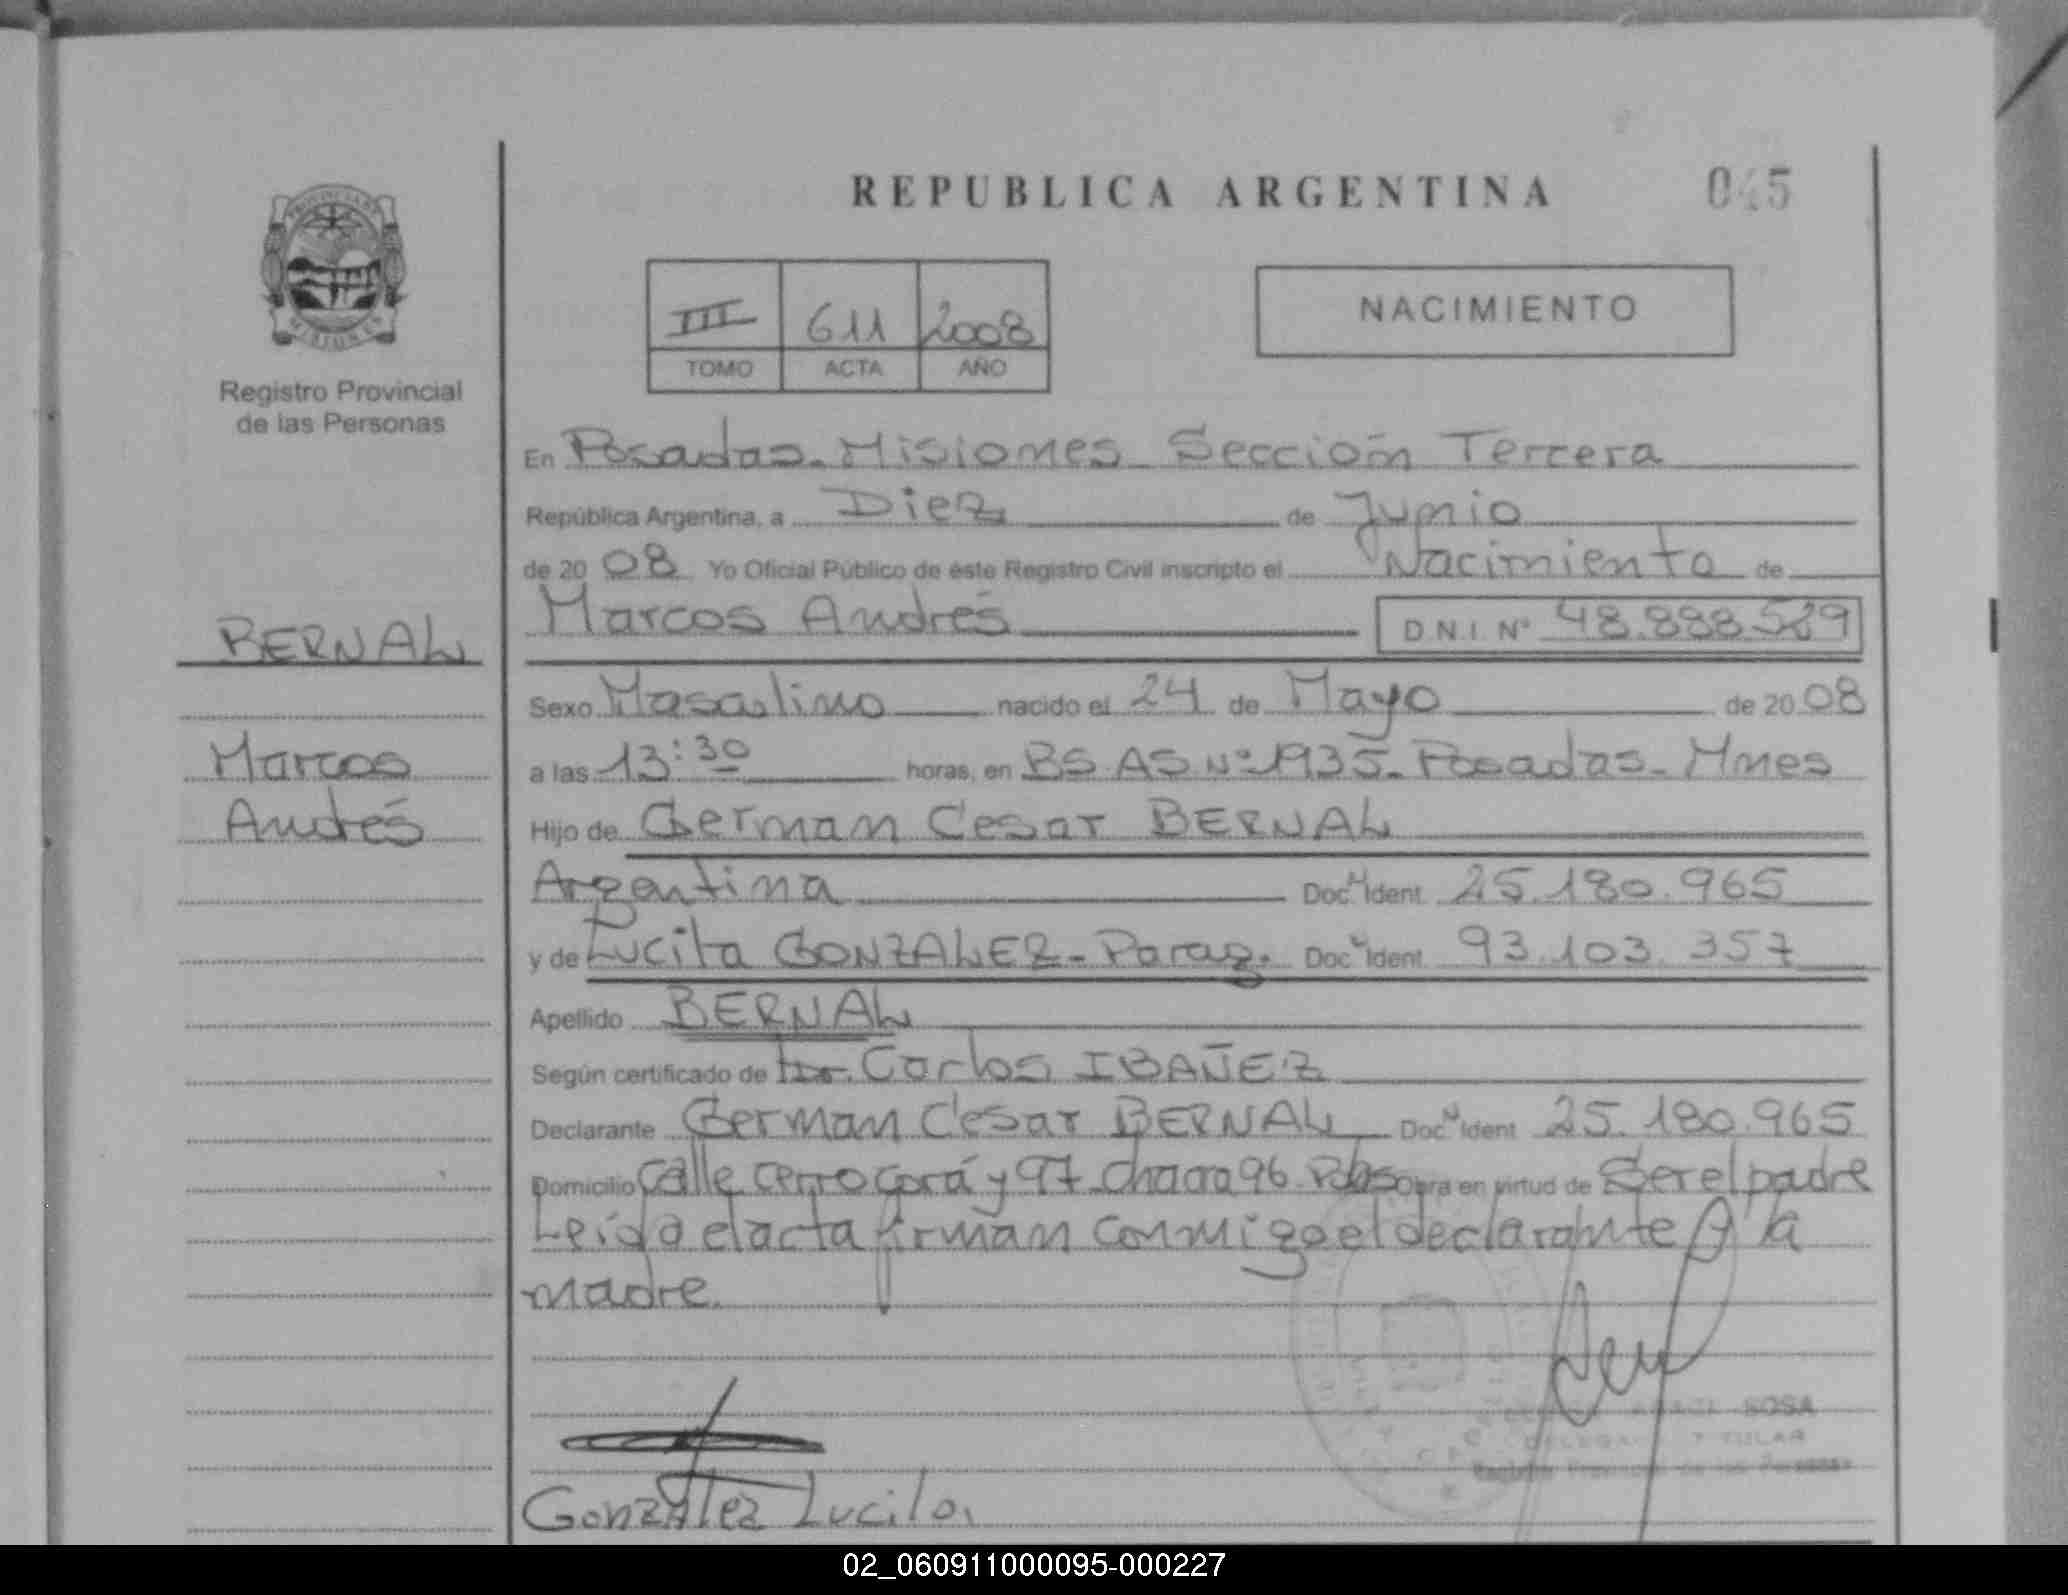 REPUBLICA ARGENTINA
045
PROVINCIA DE
MISIONES
Registro Provincial
de las Personas
III 611 2008
TOMO ACTA AÑO
NACIMIENTO
En Posadas - Misiones Sección Tercera
República Argentina, a Diez de Junio
de 20 08 Yo Oficial Público de éste Registro Civil inscripto el Nacimiento de
Marcos Andrés D N.I. Nº 48.888.529
BERNAL
Marcos
Andrés
Sexo Masculino nacido el 24 de Mayo de 20 08
a las 13:30 horas, en BS AS Nº 1935 - Posadas - Mnes
Hijo de German Cesar BERNAL
Argentina Doc. Ident. 25.180.965
y de Lucita GONZALEZ - Parag. Doc. Ident. 93.103.357
Apellido BERNAL
Según certificado de Carlos IBAÑEZ
Declarante German Cesar BERNAL Doc. Ident 25.180.965
Domicilio Calle Cerro Corá y 97 Chacra 96 Obra en virtud de Ser el padre
Leída el acta firman conmigo el declarante y la
madre.
SOSA
Registro Provincial de las Personas
González Lucila
02_060911000095-000227